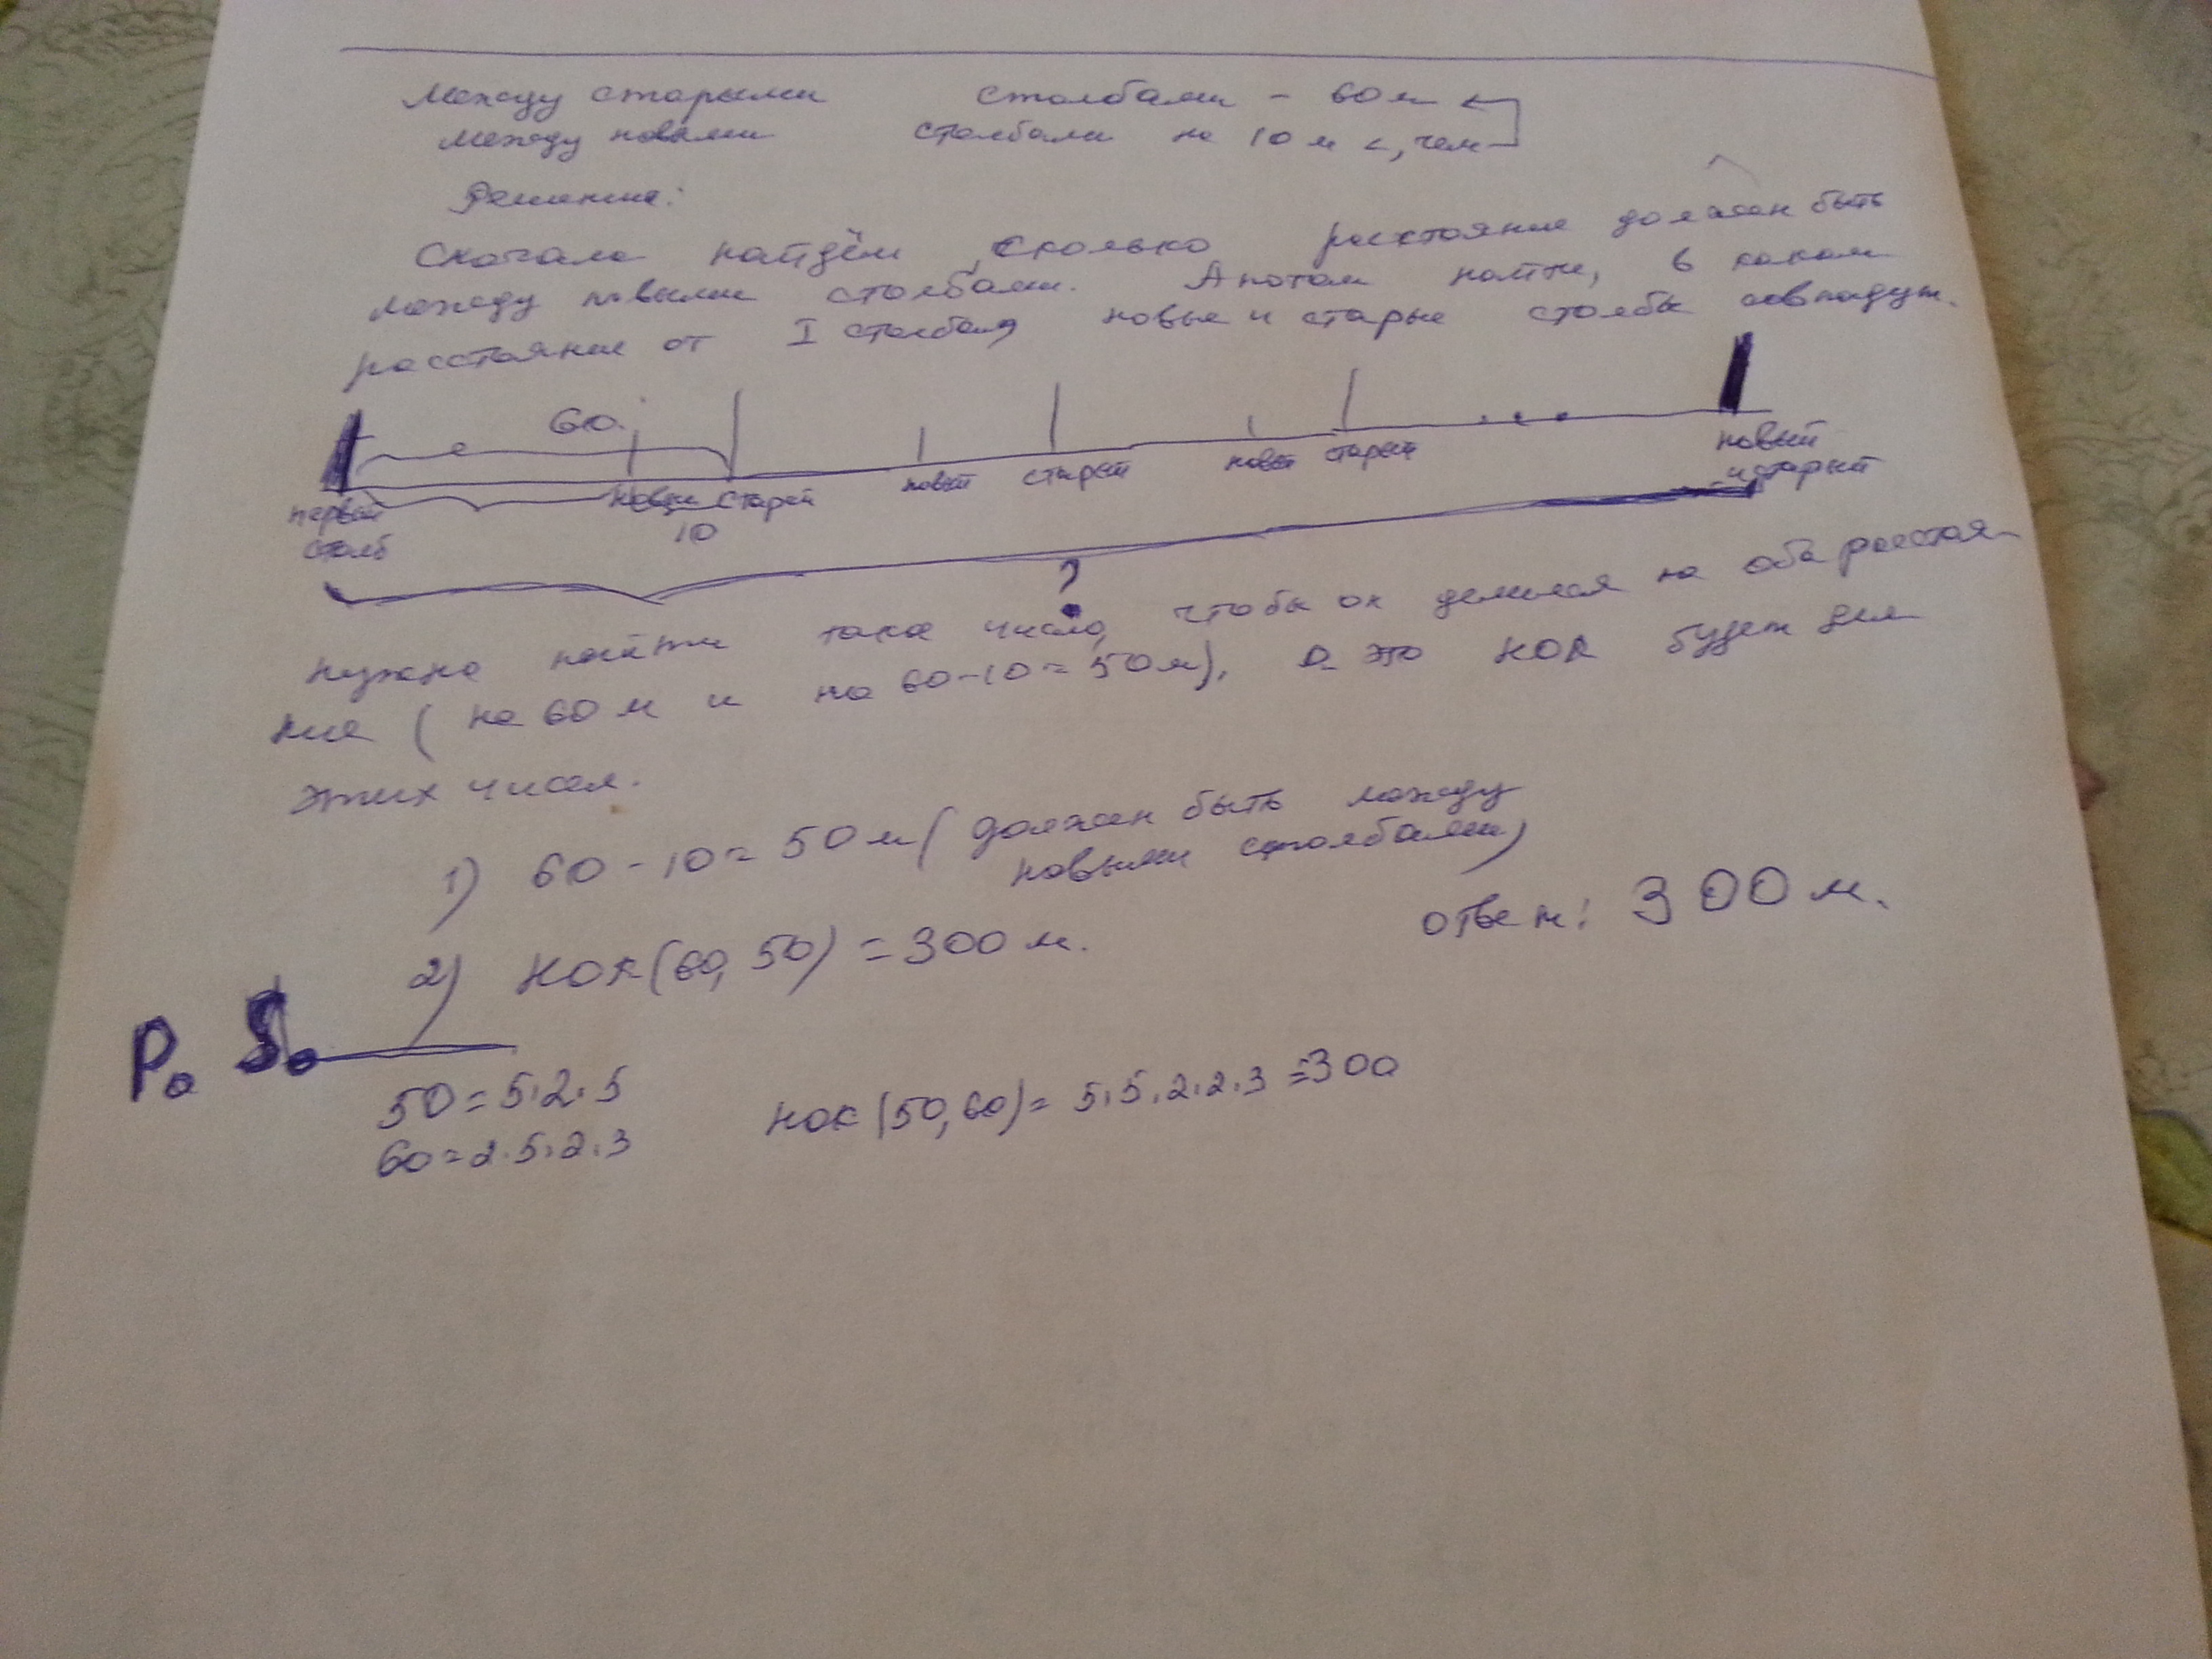 Между старыми столбами - 60 м
Между новыми столбами на 10 м <, чем
Решение:
Сначала найдём, сколько расстояние должен быть
между новыми столбами. А потом найти, в каком
расстояние от I столба новые и старые столбы совпадут.
60
первый столб
новый
старый
10
новый
старый
новый
старый
...
новый
и старый
?
Нужно найти такое число, чтобы он делился на оба расстоя-
ние (на 60 м и на 60-10=50 м), а это НОК будет для
этих чисел.
1) 60 - 10 = 50 м (должен быть между
новыми столбами)
2) НОК(60, 50) = 300 м.
Ответ: 300 м.
P. S.
50 = 5·2·5
60 = 2·5·2·3
НОК (50, 60) = 5·5·2·2·3 = 300